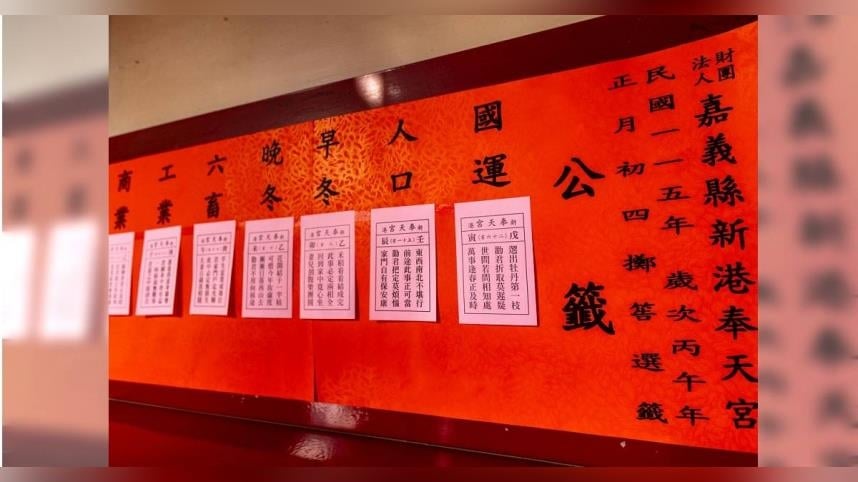 財團法人
嘉義縣新港奉天宮
民國一一五年歲次丙午年
正月初四擲筶選籤
公籤
國運
新港奉天宮
戊寅
選出牡丹第一枝
勸君折取莫遲疑
世間若問相知處
萬事逢春正及時
人口
新港奉天宮
壬辰
東西南北不堪行
前途此事正可當
勸君把定莫煩惱
家門自有保安康
早冬
新港奉天宮
乙卯
禾稻看看結成完
此事必定兩相全
回到家中寬心坐
妻兒鼓舞樂團圓
晚冬
新港奉天宮
乙未
花開結子一半枯
可惜今年汝虛度
漸漸日落西山去
勸君不用向前途
六畜
工業
商業